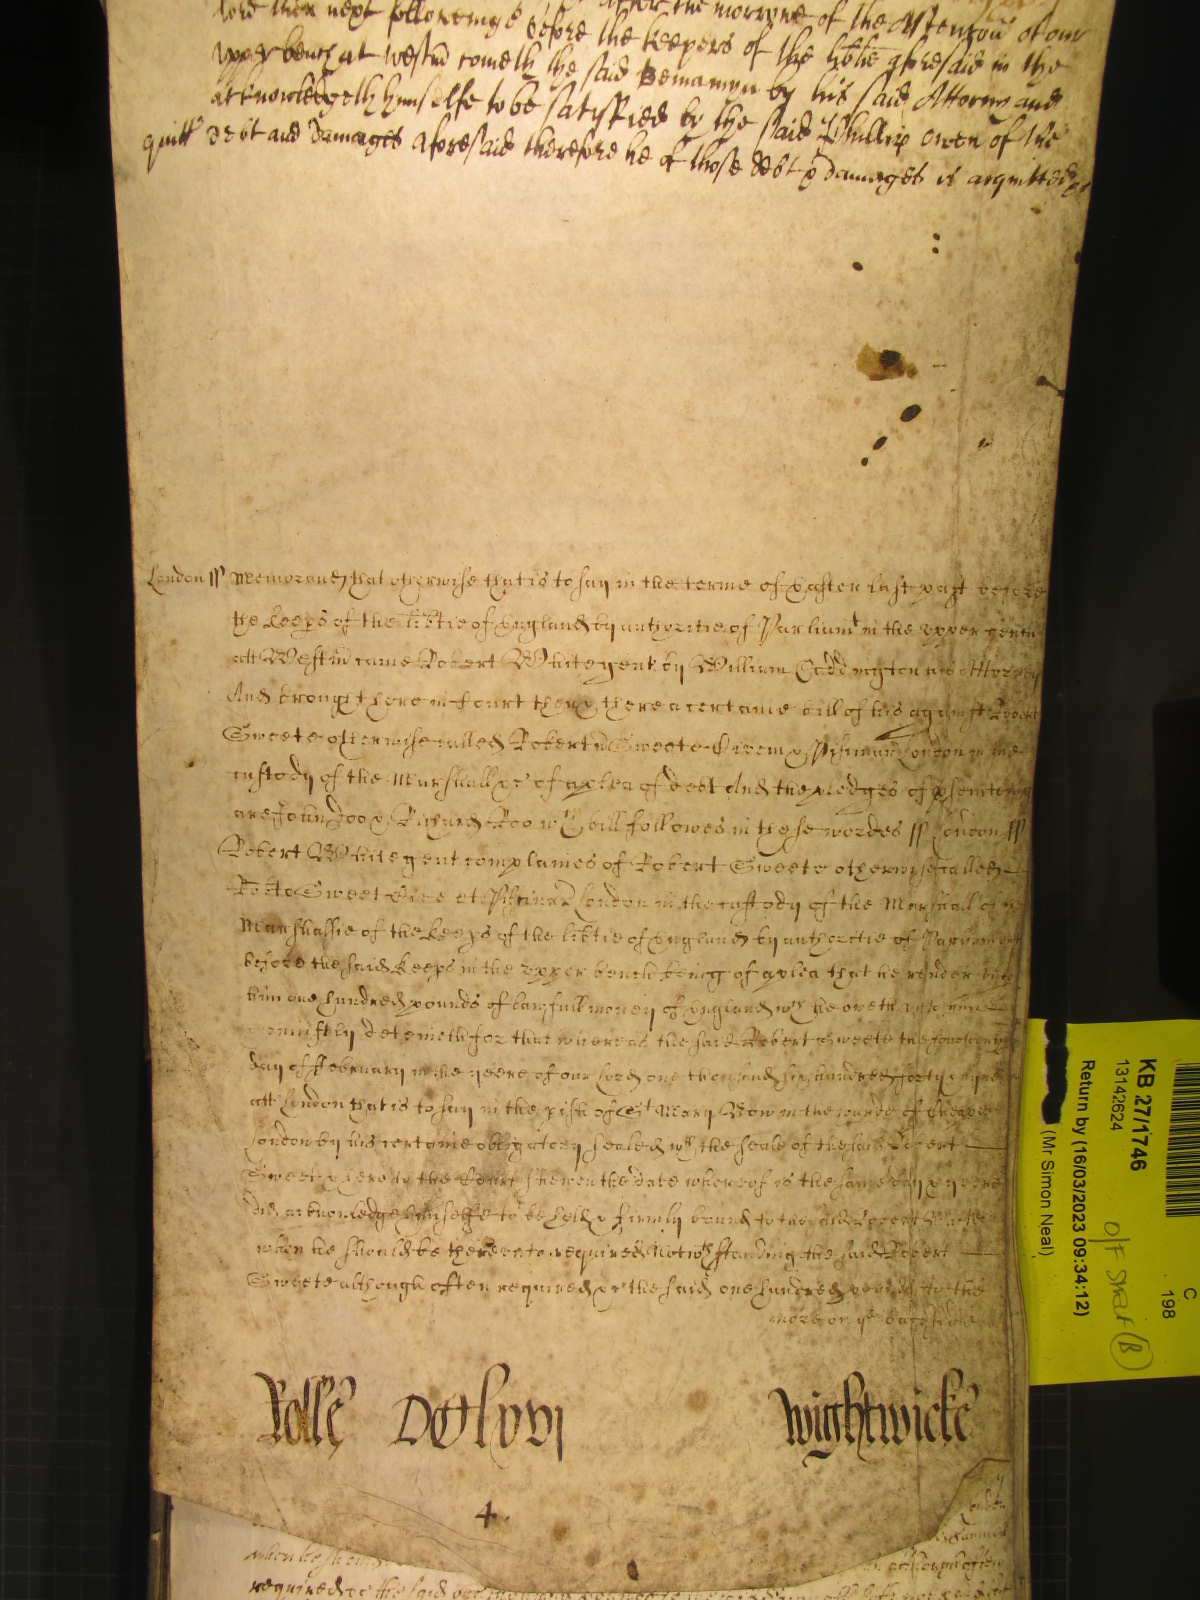 lord then next followinge before after the morrowe of the Assention of our
upper bench at Westm cometh the said Beniamyn by his said Attorny and
before the keepers of the libtie aforesaid in the
acknowledgeth himselfe to be satisfied by the said Phillip Owen of the
quitt debt and damages aforesaid therefore he of those debt & damages is acquitted &c
London ss Memorand that otherwise that is to say in the terme of Easter last past before
the keeps of the libtie of England by authoritie of Parliamt in the upper bench
att Westm came Robert White gent by William Coddington his Attorney
And brought here in Court then & there a certaine bill of his against Robert
Sweete otherwise called Robert Sweete London in the
custody of the Marshall &c of a plea of debt And the pledges of psecuting
are John Doo & Richard Roo wch bill followes in these wordes ss London ss
Robert White gent complaines of Robert Sweete otherwise called
Robto Sweet Cive et London in the custody of the Marshall of the
Marshalsie of the keeps of the libtie of England by authoritie of Parliament
before the said keeps in the upper bench being of a plea that he render unto
him one hundred pounds of lawfull money of England wch he oweth unto him
uniustly deteineth for that whereas the said Robert Sweete the
day of February in the yeere of our Lord one thousand six hundred forty
att London that is to say in the pish of St Mary Bow in the warde of Cheape
London by his certaine obligatory sealed wth the seale of the said Robert
Sweete & here to the Court shewen the date whereof is the same day & yeere
did acknowledge himselfe to be held & firmly bound to the said Robert White
when he should be thereto required Notwthstanding the said Robert
Sweete although often required &c the said one hundred pounds to the
more on ye backside
Rolle DCClxvi Wightwicke
London
when he should
although often
required &c the said one
KB 27/1746
13142624
Return by (16/03/2023 09:34:12)
(Mr Simon Neal)
C
198
O/F Strat (B)